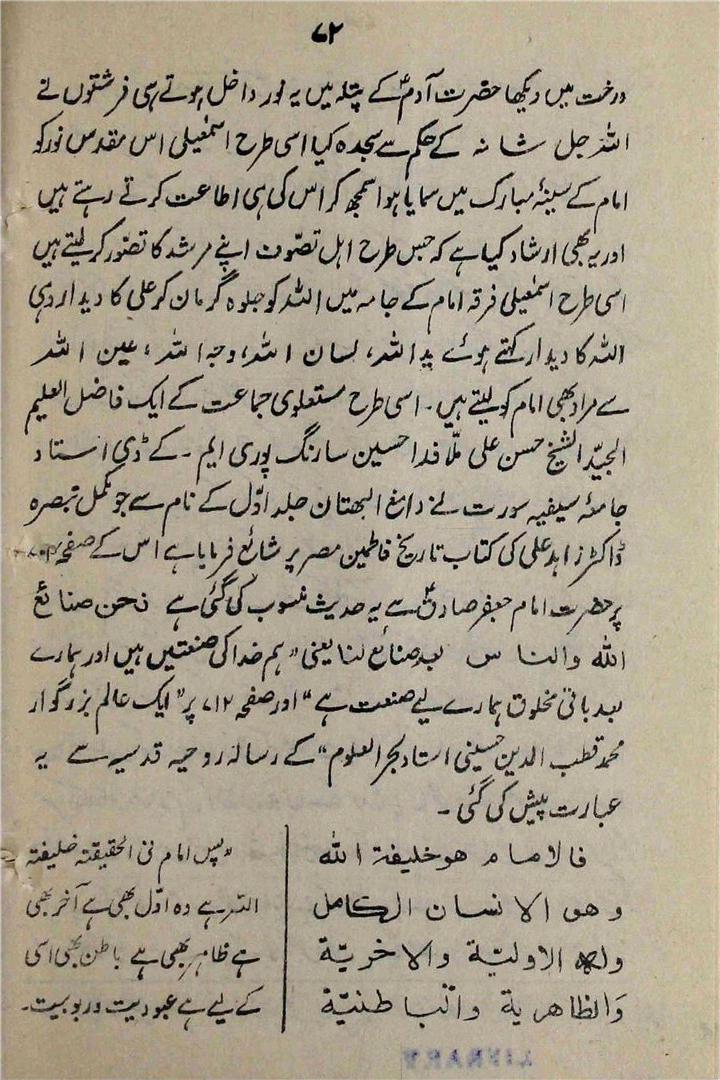 ۷۲
درخت میں دیکھا حضرت آدمؑ کے پتلہ میں یہ نور داخل ہوتے ہی فرشتوں نے
اللہ جل شانہ کے حکم سے سجدہ کیا اسی طرح اسمٰعیلی اس مقدس نور کو
امام کے سینۂ مبارک میں سمایا ہوا سمجھ کر اس کی ہی اطاعت کرتے رہتے ہیں
اور یہ بھی ارشاد کیا ہے کہ جس طرح اہل تصوف اپنے مرشد کا تصور کر لیتے ہیں
اسی طرح اسمٰعیلی فرقہ امام کے جامہ میں اللہ کو جلوہ گر مان کر علی کا دیدار ہی
اللہ کا دیدار کہتے ہوئے ید اللہ، لسان اللہ، وجہ اللہ، عین اللہ
سے مراد بھی امام کو لیتے ہیں۔ اسی طرح مستعلوی جماعت کے ایک فاضل العلیم
الجیّد الشیخ حسن علی ملّا فدا حسین سارنگ پوری ایم۔ کے ڈی استاد
جامعۂ سیفیہ سورت نے دامغ البھتان جلد اوّل کے نام سے جو مکمل تبصرہ
ڈاکٹر زاہد علی کی کتاب تاریخ فاطمین مصر پر شائع فرمایا ہے اس کے صفحہ
پر حضرت امام جعفر صادقؑ سے یہ حدیث منسوب کی گئی ہے نحن صنائع
اللہ والناس بعد صنائع لنا یعنی "ہم خدا کی صنعتیں ہیں اور ہمارے
بعد باقی مخلوق ہمارے لیے صنعت ہے" اور صفحہ ۷۱۲ پر "ایک عالم بزرگوار
محمد قطب الدین حسینی استاد بحر العلوم" کے رسالہ روحیہ قدسیہ سے یہ
عبارت پیش کی گئی۔
فالامام هو خلیفة الله
وهو الانسان الکامل
وله الاولیّة والاخریّة
والظاهریة والباطنیّة
"پس امام فی الحقیقتہ خلیفتہ
اللہ ہے وہ اوّل بھی ہے آخر بھی
ہے ظاہر بھی ہے باطن بھی اسی
کے لیے ہے عبودیت و ربوبیت۔
LIBRARY